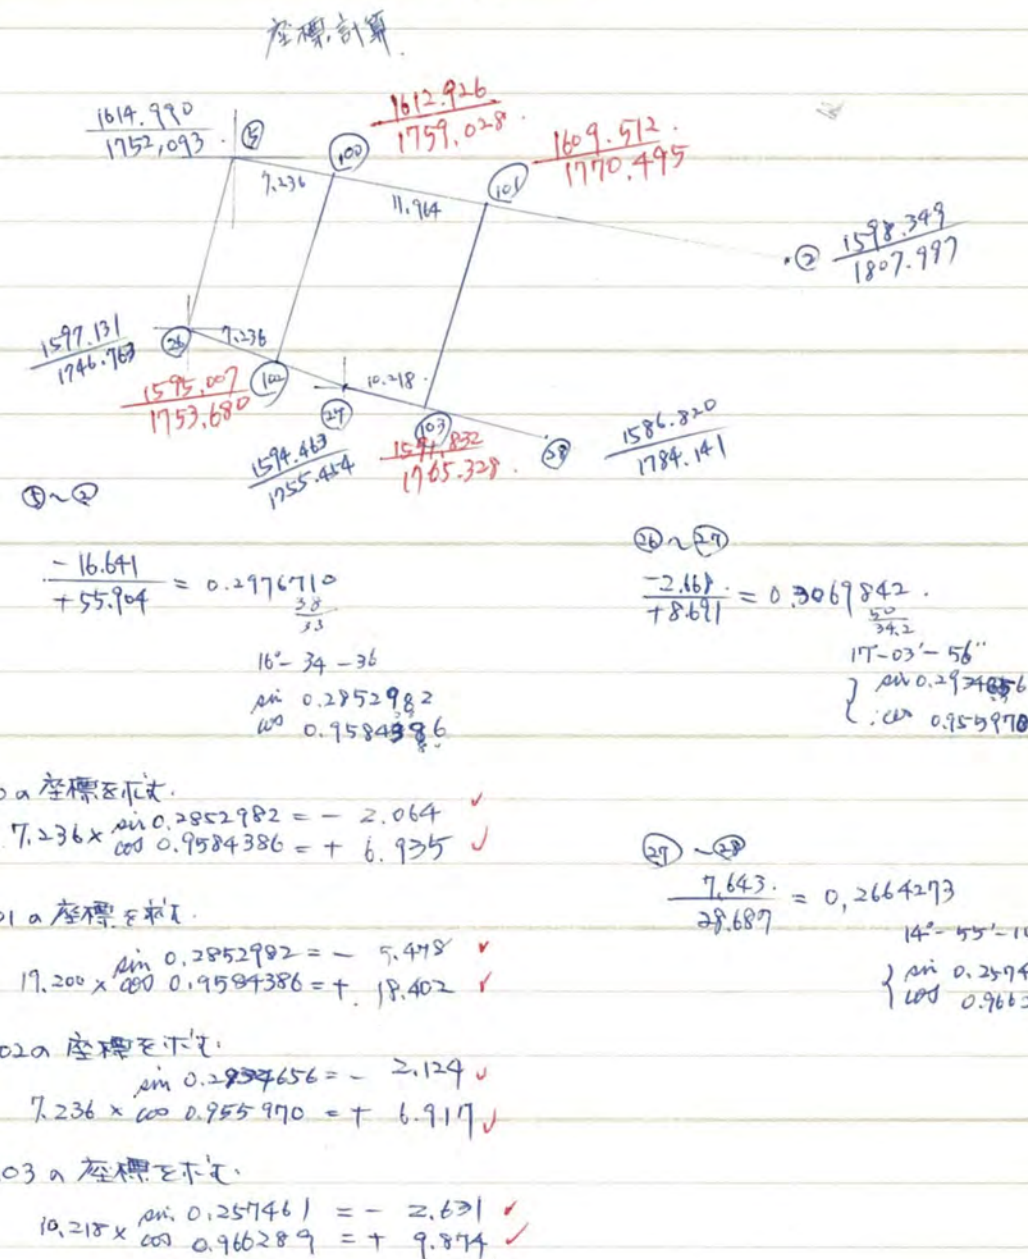 座標計算.
1614.990
1752,093
⑤
1612.926
1759,028
100
1609.512
1770.495
101
7.236
11.964
② 1598.349
1807.997
1597.131
1746.763
26
7.236
102
1595,007
1753,680
10.218
27
103
28
1594.463
1755.454
1591,832
1765.328
1586.820
1784.141
⑤~②
-16.641
+55.904
= 0.2976710
38
33
16°-34-36
sin 0.2852982
cos 0.9584386
26~27
-2.668
+8.691
= 0.3069842
50
34.2
17°-03'-56"
sin 0.2934656
cos 0.955970
0の座標を求む.
7.236× sin 0.2852982 = - 2.064
cos 0.9584386 = + 6.935
27~28
7,643
28.687
= 0,2664273
14°-55'-1
sin 0.2574
cos 0.966
01の座標を求む.
19.200× sin 0.2852982 = - 5.478
cos 0.9584386 = + 18.402
02の座標を求む.
sin 0.2934656 = - 2.124
7.236 × cos 0.955970 = + 6.917
03の座標を求む.
10.218× sin. 0.257461 = - 2.631
cos 0.966289 = + 9.874